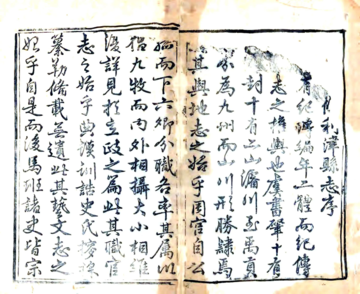 利津縣志序
有紀傳編年二體而紀傳
志之權輿也虞書肇十有
封十有二山濬川至禹貢
永為九州而山川形勝隸焉
其輿地志之始乎周官自公
孤而下六卿分職各率其屬以
倡九牧而內外相攝大小相維
後詳見於立政之篇此其職官
志之始乎典謨訓誥史氏
纂勒備載無遺此其藝文志之
始乎自是而後馬班諸史皆宗